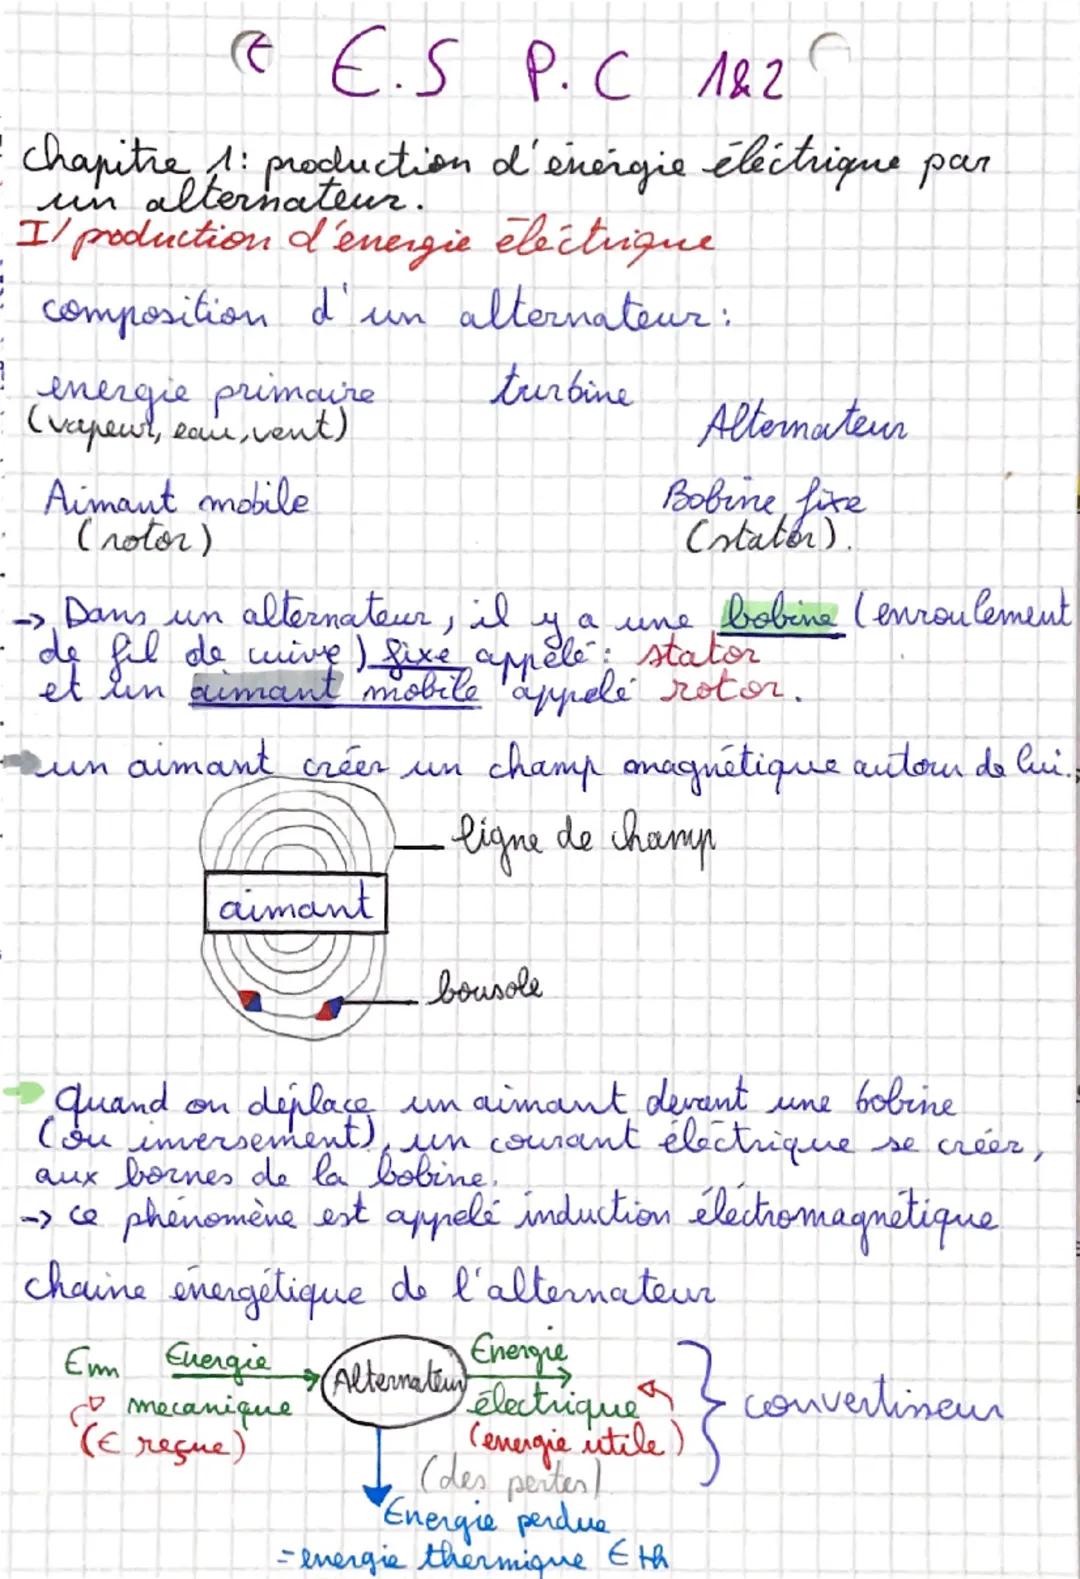 E.S P.C 1&2
chapitre 1: production d'énérgie éléctrique par
un alternateur.
I/ production d'énergie éléctrique
composition d'un alternateur:
energie primaire turbine
(vapeur, eau, vent) Alternateur
Aimant mobile Bobine fixe
(rotor) (stator).
-> Dans un alternateur, il y a une bobine (enroulement
de fil de cuivre) fixe appelé: stator
et un aimant mobile appelé rotor.
un aimant créer un champ magnétique autour de lui.
ligne de champ
aimant
bousole
Quand on déplace un aimant devant une bobine
(ou inversement), un courant éléctrique se créer,
aux bornes de la bobine.
-> ce phénomène est appelé induction éléctromagnétique
chaine énergétique de l'alternateur
Em Energie Alternateur Energie
mecanique électrique convertisseur
(E reçue) (énergie utile)
(des pertes)
Energie perdue
= energie thermique Eth